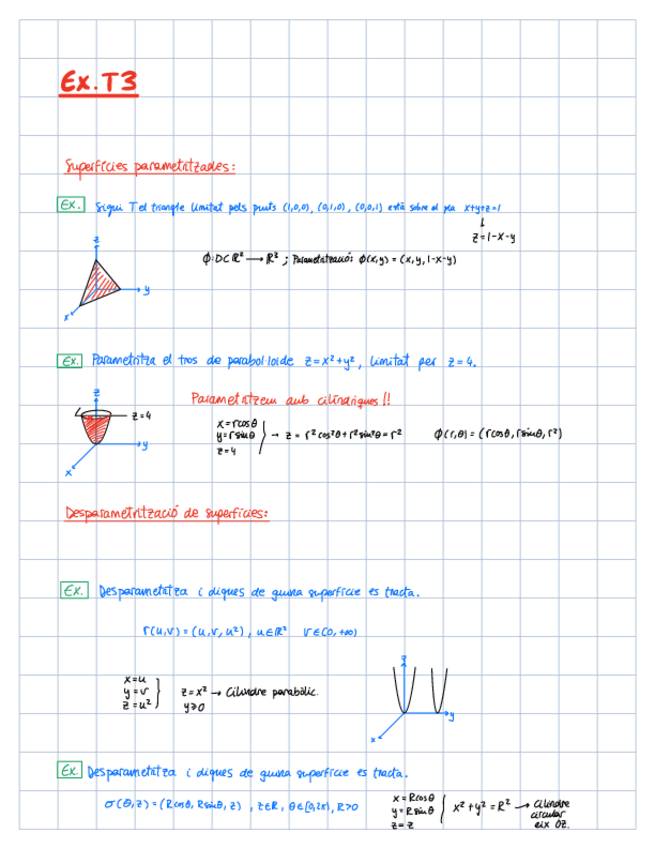 Ex.T3
Superfícies parametritzades:
Ex. Sigui T el triangle limitat pels punts (1,0,0), (0,1,0), (0,0,1) està sobre el pla x+y+z=1
↓
z=1-x-y
z
y
x
Φ:D⊂ℝ² → ℝ³ ; Parametrització: Φ(x,y) = (x,y,1-x-y)
Ex. Parametritza el tros de paraboloide z=x²+y², limitat per z=4.
z
z=4
y
x
Parametritzem amb cilíndriques!!
x=rcosθ
y=rsinθ
z=4
→ z = r²cos²θ+r²sin²θ=r²
Φ(r,θ) = (rcosθ, rsinθ, r²)
Desparametrització de superfícies:
Ex. Desparametritza i digues de quina superfície es tracta.
r(u,v) = (u,v,u²), u∈ℝ² v∈[0,+∞)
x=u
y=v
z=u²
z=x² → Cilindre parabòlic.
y≥0
z
y
x
Ex. Desparametritza i digues de quina superfície es tracta.
σ(θ,z) = (Rcosθ, Rsinθ, z) , z∈ℝ, θ∈[0,2π), R>0
x=Rcosθ
y=Rsinθ
z=z
x²+y²=R² → cilindre
circular
eix OZ.